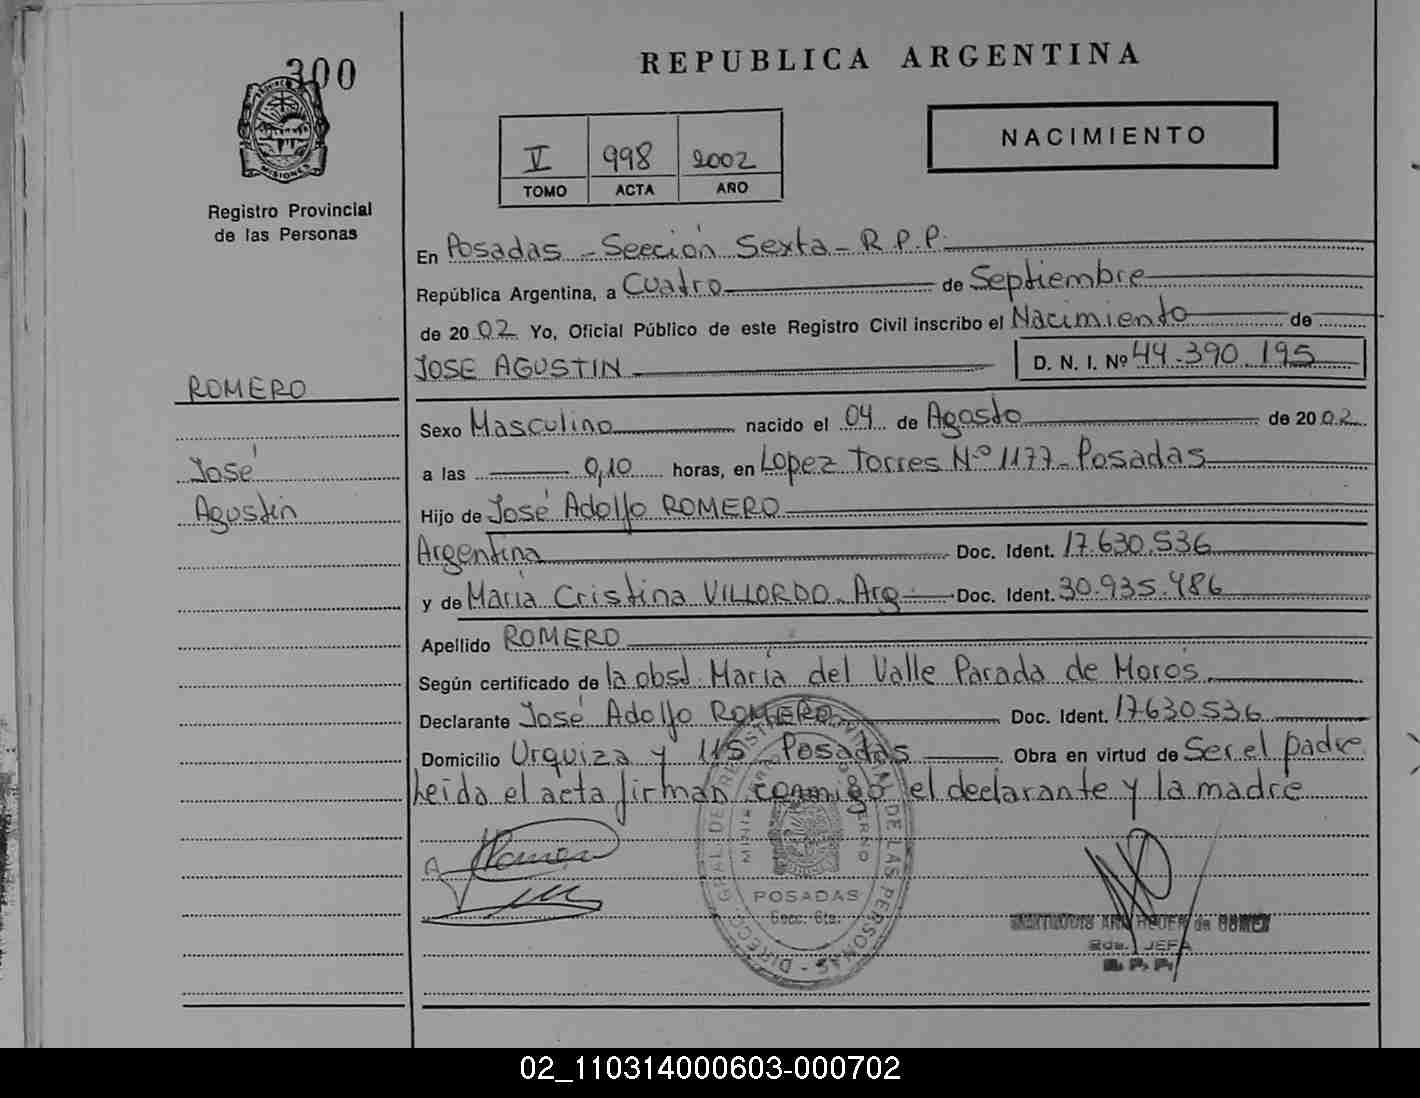 300
MISIONES
Registro Provincial
de las Personas
REPUBLICA ARGENTINA
V 998 2002
TOMO ACTA AÑO
NACIMIENTO
En Posadas - Sección Sexta - R.P.P.
República Argentina, a Cuatro de Septiembre
de 2002 Yo, Oficial Público de este Registro Civil inscribo el Nacimiento de
JOSE AGUSTIN D. N. I. Nº 44.390.195
ROMERO
José
Agustín
Sexo Masculino nacido el 04 de Agosto de 2002
a las 0,10 horas, en Lopez Torres Nº 1177 - Posadas
Hijo de José Adolfo ROMERO
Argentina Doc. Ident. 17.630.536
y de María Cristina VILLORDO - Arg. Doc. Ident. 30.935.486
Apellido ROMERO
Según certificado de la obst. María del Valle Parada de Moros
Declarante José Adolfo ROMERO Doc. Ident. 17630536
Domicilio Urquiza y 115 Posadas Obra en virtud de Ser el padre
Leida el acta firman conmigo el declarante y la madre
POSADAS
Secc. 6ta.
JEFA
R. P. P.
02_110314000603-000702